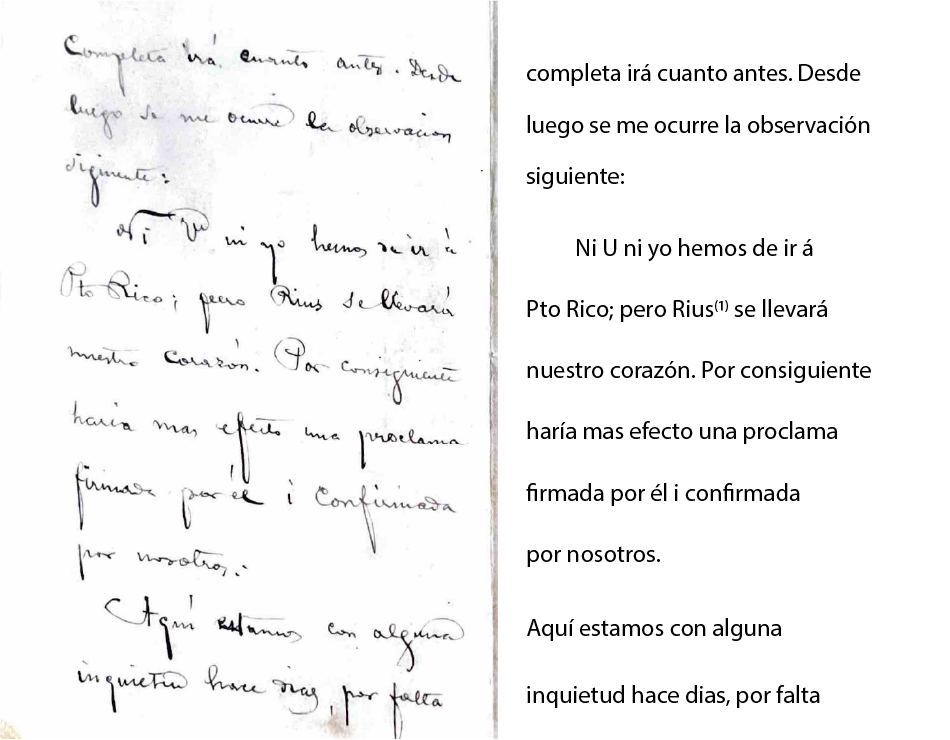 Completa irá cuanto antes. Desde
luego se me ocurre la observacion
siguiente:
Ni U ni yo hemos de ir á
Pto Rico; pero Rius se llevará
nuestro corazón. Por consiguiente
haria mas efecto una proclama
firmada por él i confirmada
por nosotros.
Aquí estamos con alguna
inquietud hace dias, por falta
completa irá cuanto antes. Desde
luego se me ocurre la observación
siguiente:
Ni U ni yo hemos de ir á
Pto Rico; pero Rius(1) se llevará
nuestro corazón. Por consiguiente
haría mas efecto una proclama
firmada por él i confirmada
por nosotros.
Aquí estamos con alguna
inquietud hace dias, por falta